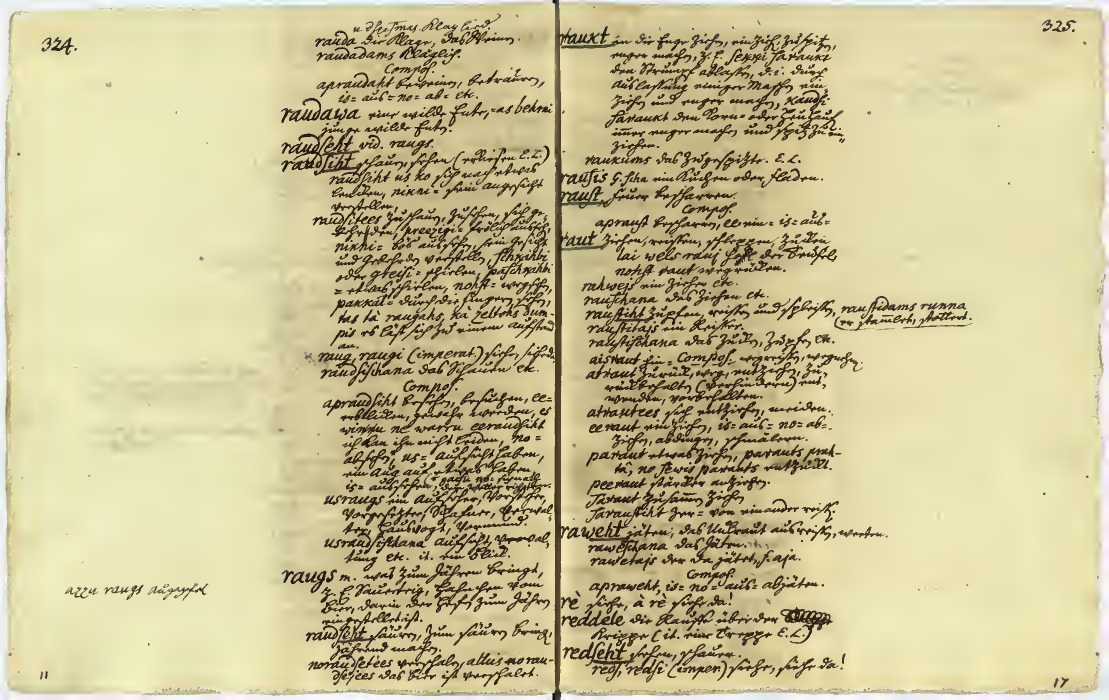 324.
rauda die Klage, das Weinen.
raudadams kläglich.
Compos.
apraudaht beweinen, betrauren,
is= aus= no= ab= etc.
raudawa eine wilde Ente, =as behrni
junge wilde Enten.
raudseht vid. raugs.
raudsiht schauen, sehen (erkiesen E.L.)
raudsiht us ko sich nach etwas
lenken, nikni= sein angesicht
verstellen.
raudsitees zuschauen, zusehen, sich
nikni= bös aussehen, sein Gesicht
und Geberden verstellen, schkihbi
oder greisi= schielen, paschkihbi
= etwas schielen, nohst= wegsehen,
pakkal= durch die finger sehen,
tas tà raugahs, kà zeltohs dum=
pis es läst sich zu einem Aufstand
an.
raug, raugi (imperat.) siehe, siehe da
raudsischana das Schauen etc.
Compos.
apraudsiht besehen, besuchen, ee=
erblicken, gewahr werden, es
winnu ne warru eeraudsiht
ich kan ihn nicht leiden, no=
absehen, us= Aufsicht haben,
ein Aug auf etwas haben,
is= aussehen,
usraugs ein Aufseher, Vorsteher,
Vorgesetzter, Schaffner, Verwal=
ter, Hausvogt, Vormund.
usraudsischana Aufsicht, Verwal=
tung etc. it. ein Blick.
raugs m. was zum Gähren bringt,
z.E. Sauerteig, Bahrehen vom
bier, darin der Hefen zum Gähren
eingestellet ist.
raudseht säuren, zum säuren bringen,
gährend machen.
noraudsetees verschalen, allus norau=
dsejees das bier ist verschalet.
azzu raugs augapfel
11
325.
raukt in die Enge ziehen, einziehen, zuspitzen,
enger machen, z.E. sekki saraukt
den Strumpf ablassen, d.i. durch
auslassung einiger Maschen ein=
ziehen und enger machen, kaudsi
saraukt den Korn= oder Heuhauf
immer enger machen und spitz zu ein=
ziehen.
raukums das Zugespitzte. E.L.
rausis G. scha ein Kuchen oder Fladen.
raust, Feuer bescharren.
Compos.
apraust bescharren, ee ein= is= aus=
raut ziehen, reissen, schleppen, zucken
lai wels rauj hohl der Teufel,
nohst raut wegrücken.
rahweis ein Ziehen etc.
raufchana das Ziehen etc.
raustiht zupfen, reissen und schleissen, raustidams runna
(er stamlet, stottert.
raustitajs ein Reisser.
raustischana das Zucken, Zupfen etc.
aisraut hin= Compos. wegreissen, wegziehen
atraut zurük, weg, entziehen, zu=
rück behalten (verhindern) ent=
wenden, vorbehalten.
atrautees sich entziehen, meiden.
eeraut einziehen, is= aus= no= ab=
ziehen, abdingen, schmälern.
paraut etwas ziehen, parauts prah=
tà, no sewis parauts entzückt.
peeraut stärcker anziehen.
saraut zusammen ziehen
saraustiht zer= von einander reissen.
raweht jäten, das Unkraut ausreissen, werten.
raweschana das Jäten.
rawetajs der da jätet, f. aja.
Compos.
aprawèht, is= no= aus= abjäten.
rè siehe, à rè siehe da!
reddele die Rauffe über der
Krippe (it. eine Treppe E.L.)
redseht sehen, schauen.
reds, redsi (imper.) siehe, siehe da!
17